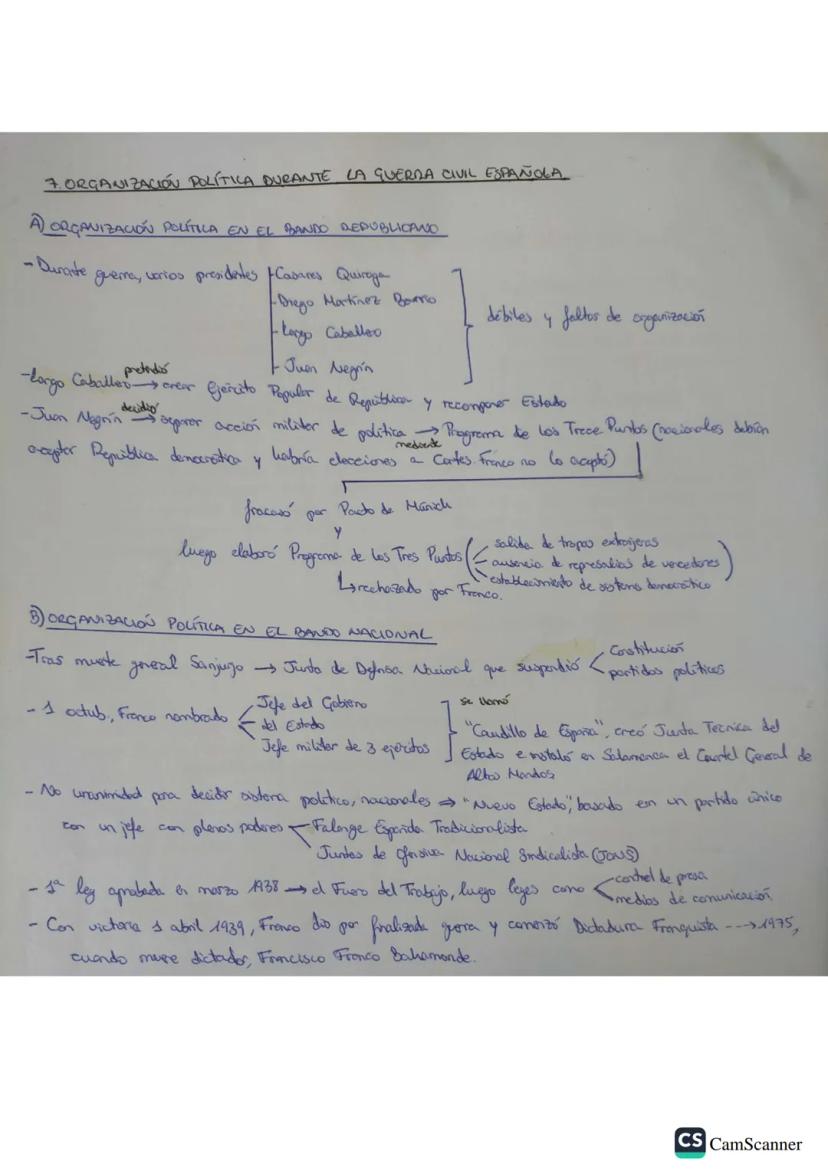 7. ORGANIZACIÓN POLÍTICA DURANTE LA GUERRA CIVIL ESPAÑOLA
A) ORGANIZACIÓN POLÍTICA EN EL BANDO REPUBLICANO
- Durante guerra, varios presidentes
Casares Quiroga
Diego Martínez Barrio
Largo Caballero
Juan Negrín
débiles y faltos de organización
- Largo Caballero pretendió → crear Ejército Popular de República y recomponer Estado
- Juan Negrín decidió → separar acción militar de política → Programa de los Trece Puntos (nacionales debían
aceptar República democrática y habría elecciones a Cortes. Franco no lo aceptó)
mediante
fracasó por Pacto de Múnich
y
luego elaboró Programa de los Tres Puntos
salida de tropas extranjeras
ausencia de represalias de vencedores
establecimiento de sistema democrático
↳ rechazado por Franco.
B) ORGANIZACIÓN POLÍTICA EN EL BANDO NACIONAL
- Tras muerte general Sanjurjo → Junta de Defensa Nacional que suspendió
Constitución
partidos políticos
- 1 octub, Franco nombrado
Jefe del Gobierno
del Estado
Jefe militar de 3 ejércitos
se llamó
"Caudillo de España", creó Junta Técnica del
Estado e instaló en Salamanca el Cuartel General de
Altos Mandos
- No unanimidad para decidir sistema político, nacionales ⇒ "Nuevo Estado", basado en un partido único
con un jefe con plenos poderes
Falange Española Tradicionalista
Juntas de Ofensiva Nacional Sindicalista (JONS)
- 1ª ley aprobada en marzo 1938 → el Fuero del Trabajo, luego leyes como
control de prensa
medios de comunicación
- Con victoria 1 abril 1939, Franco dio por finalizada guerra y comenzó Dictadura Franquista ---> 1975,
cuando muere dictador, Francisco Franco Bahamonde.
CS CamScanner